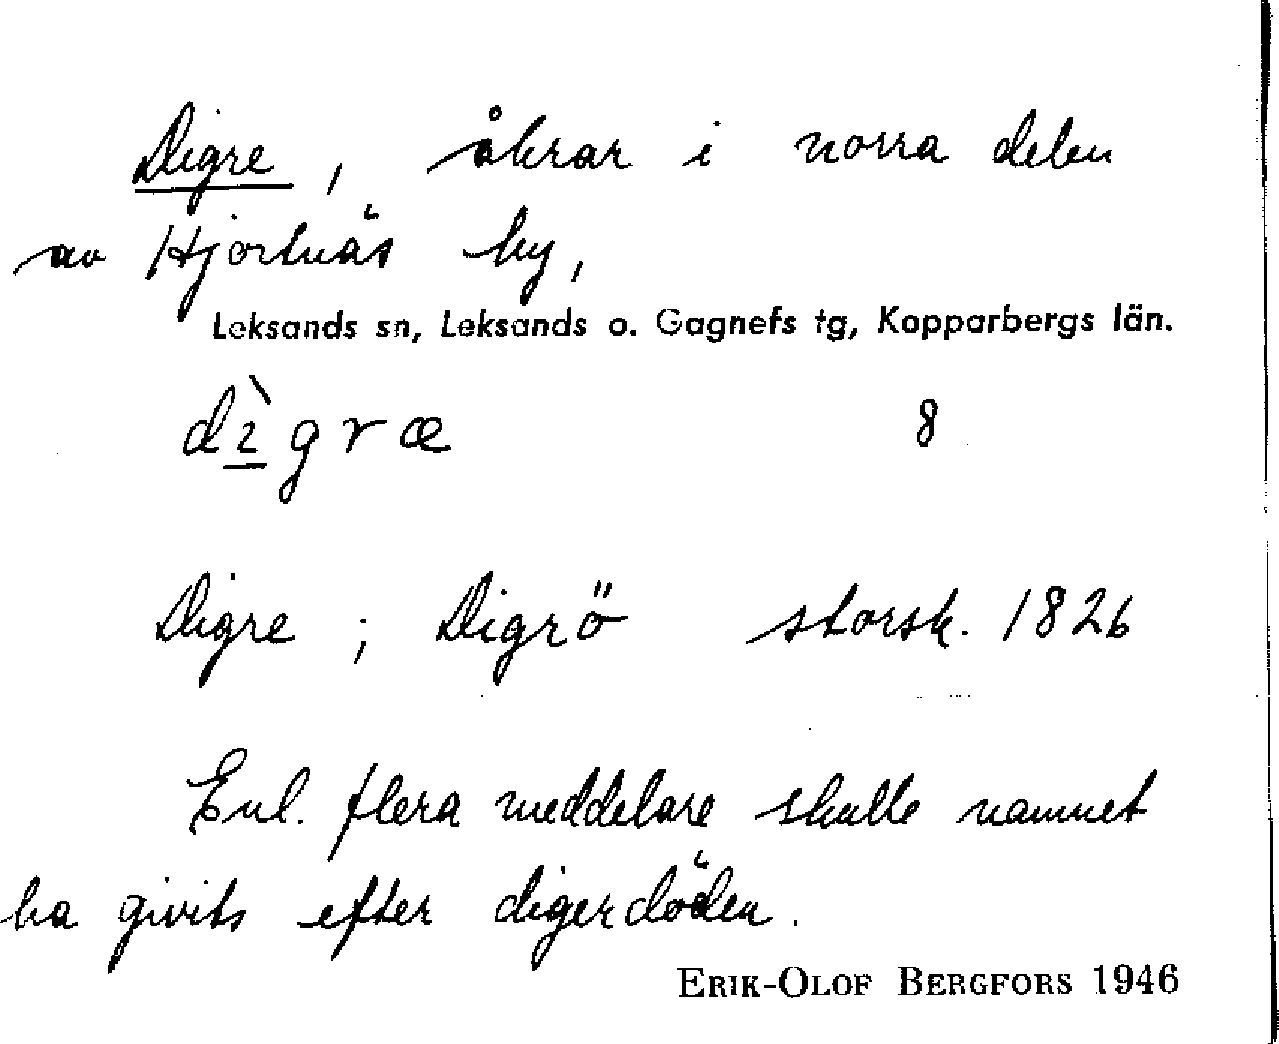 Digre, åkrar i norra delen
av Hjortnäs by,
Leksands sn, Leksands o. Gagnefs tg, Kopparbergs län.
dì̱græ 8
Digre; Digrö storsk. 1826
Enl. flera meddelare skulle namnet
ha givits efter digerdöden.
ERIK-OLOF BERGFORS 1946